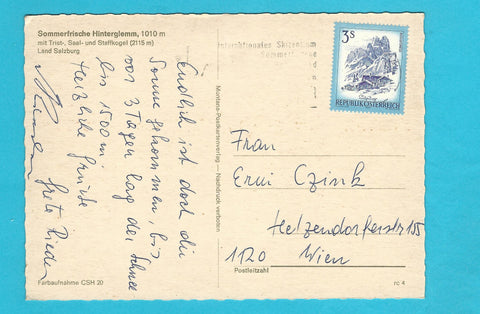 Sommerfrische Hinterglemm, 1010 m
mit Trist-, Saal- und Staffkogel (2115 m)
Land Salzburg
Endlich ist doch die
Sonne gekommen, bis
vor 3 Tagen lag der Schnee
bis 1500 m
Herzliche Grüße
Grete
Farbaufnahme GSH 20
Montana-Postkartenverlag — Nachdruck verboten
Internationales Skizentrum
3S
REPUBLIK ÖSTERREICH
Frau
Erni Czink
Hetzendorferstr 155
1120 Wien
Postleitzahl
rc 4